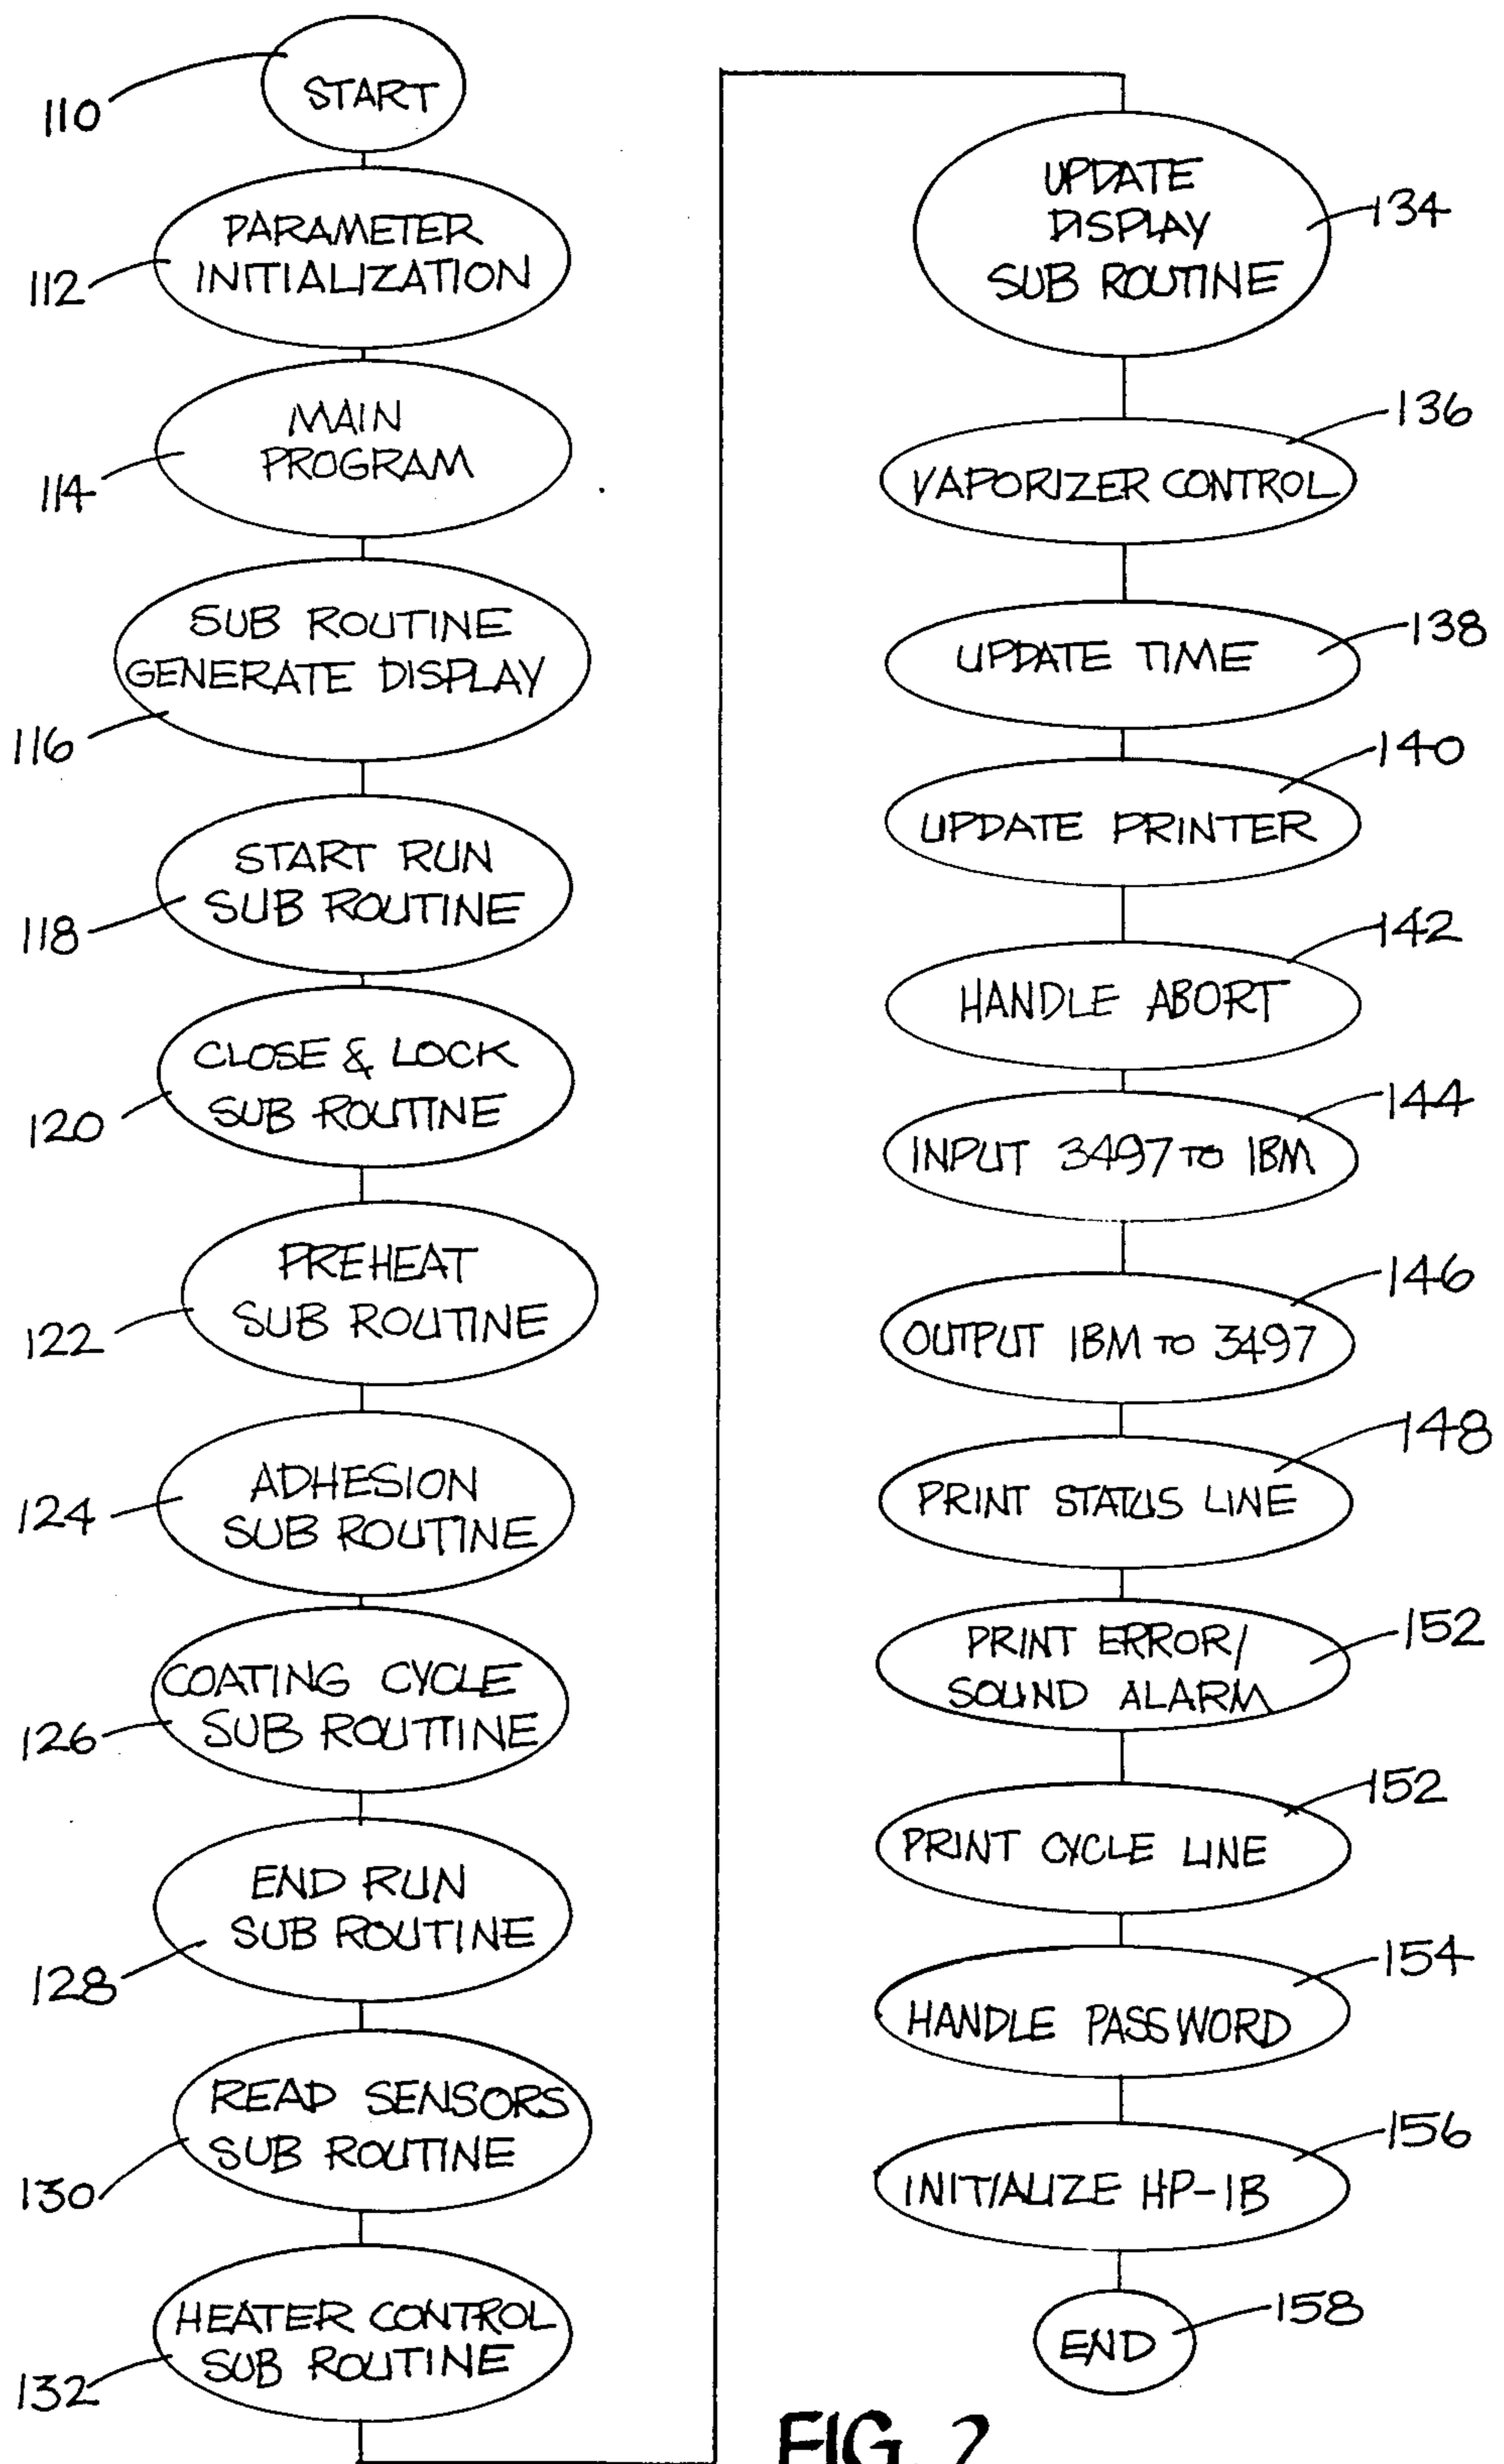 START
110
PARAMETER
INITIALIZATION
112
MAIN
PROGRAM
114
SUB ROUTINE
GENERATE DISPLAY
116
START RUN
SUB ROUTINE
118
CLOSE & LOCK
SUB ROUTINE
120
PREHEAT
SUB ROUTINE
122
ADHESION
SUB ROUTINE
124
COATING CYCLE
SUB ROUTINE
126
END RUN
SUB ROUTINE
128
READ SENSORS
SUB ROUTINE
130
HEATER CONTROL
SUB ROUTINE
132
UPDATE
DISPLAY
SUB ROUTINE
134
136
VAPORIZER CONTROL
138
UPDATE TIME
140
UPDATE PRINTER
142
HANDLE ABORT
144
INPUT 3497 TO IBM
146
OUTPUT IBM TO 3497
148
PRINT STATUS LINE
152
PRINT ERROR/
SOUND ALARM
152
PRINT CYCLE LINE
154
HANDLE PASSWORD
156
INITIALIZE HP-IB
158
END
FIG. 2